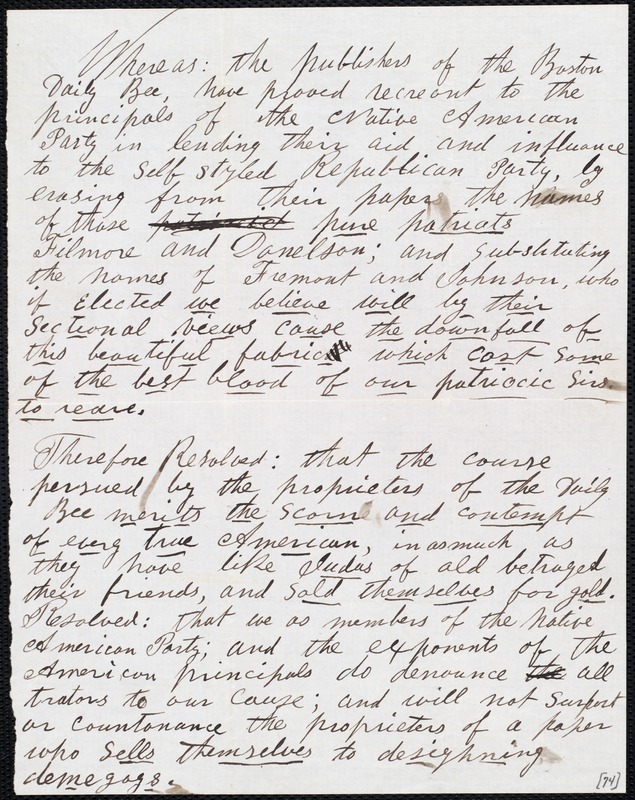 Whereas: the publishers of the Boston
Daily Bee, have proved recreant to the
principals of the Native American
Party in lending their aid and influance
to the self styled Republican Party, by
erasing from their paper the names
of those pure patriots
Filmore and Donelson; and Substituting
the names of Fremont and Johnson, who
if Elected we believe will by their
Sectional views cause the downfall of
this beautiful fabric which cost Some
of the best blood of our patriocic Sirs
to reare.
Therefore Resolved: that the course
persued by the proprieters of the Daily
Bee merits the Scorne and contempt
of every true American, inasmuch as
they have like Judas of old betrayed
their friends, and Sold themselves for gold.
Resolved: that we as members of the Native
American Party; and the exponents of the
American principals do denounce the all
trators to our Cause; and will not Surport
or countonance the proprieters of a paper
who Sells themselves to desighning
demegogs.
[74]